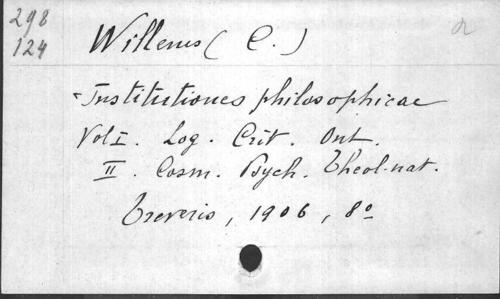 298
124
Willems (C.)
Institutiones philosophicae
Vol I. Log. Crit. Ont.
II. Cosm. Psych. Theol. nat.
Treveris, 1906, 8º